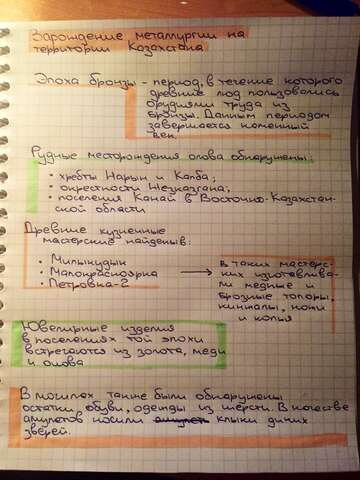 Зарождение металлургии на
территории Казахстана
Эпоха бронзы - период, в течение которого
древние люд пользовались
орудиями труда из
бронзы. Данным периодом
завершается каменный
век.
Рудные месторождения олова обнаружены:
• хребты Нарын и Калба;
• окрестности Жезказгана;
• поселения Канай в Восточно-Казахстан-
ской области
Древние кузненные
мастерские найдены в:
• Милыкудук
• Малокрасноярка
• Петровка-2
→ в таких мастерс-
ких изготавлива-
ли медные и
брозные топоры,
кинжалы, ножи
и копья
Ювелирные изделия
в поселениях той эпохи
встречаются из золота, меди
и олова
В могилах также были обнаружены
остатки обуви, одежды из шерсти. В качестве
амулетов носили клыки диких
зверей.